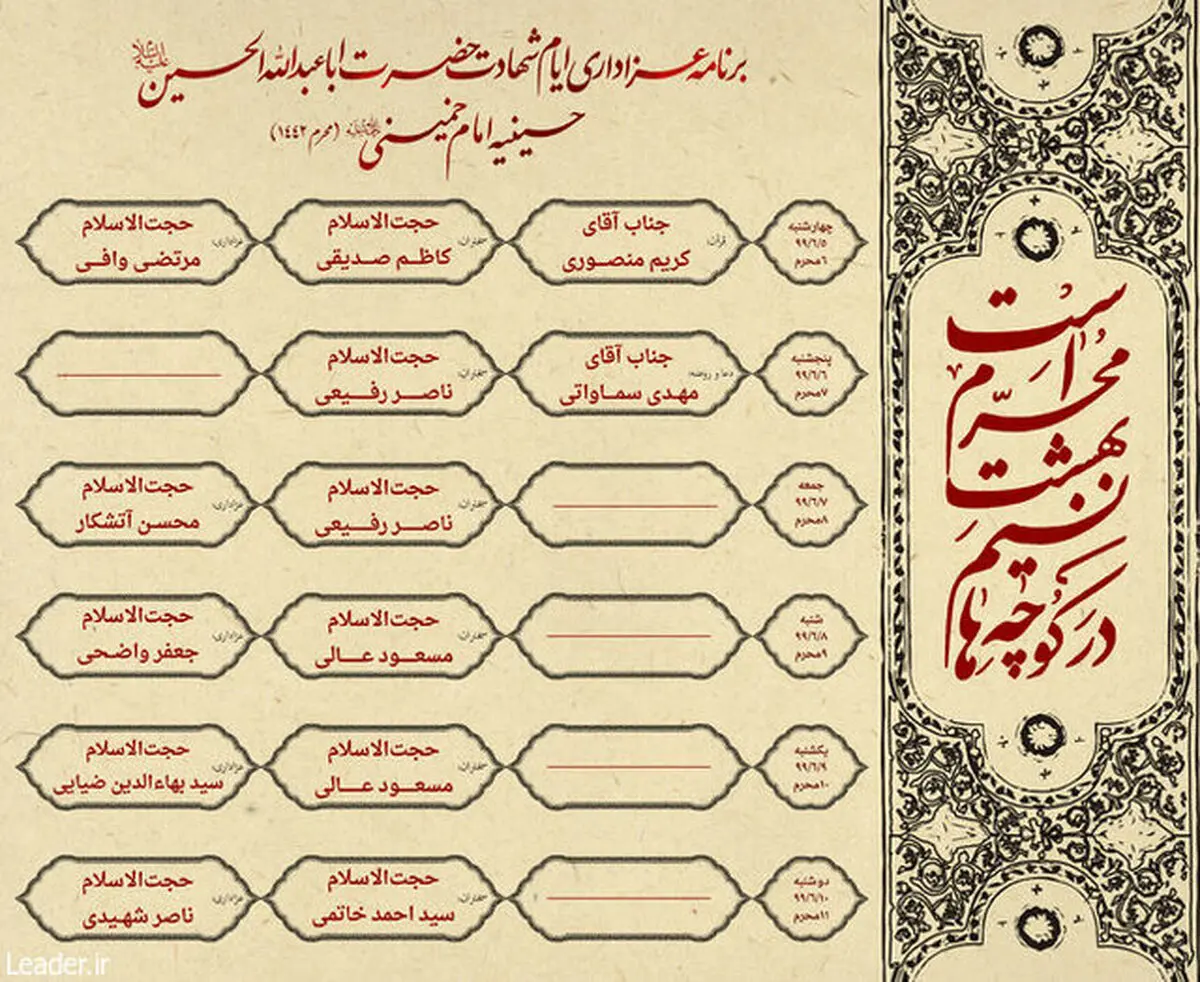 برنامه عزاداری ایام شهادت حضرت اباعبدالله الحسین علیه السلام
حسینیه امام خمینی (محرم ۱۴۴۲)
چهارشنبه
۹۹/۶/۵
۶محرم
قرآن:
جناب آقای
کریم منصوری
سخنران:
حجت‌الاسلام
کاظم صدیقی
عزاداری:
حجت‌الاسلام
مرتضی وافی
پنجشنبه
۹۹/۶/۶
۷محرم
دعا و روضه:
جناب آقای
مهدی سماواتی
سخنران:
حجت‌الاسلام
ناصر رفیعی
جمعه
۹۹/۶/۷
۸محرم
سخنران:
حجت‌الاسلام
ناصر رفیعی
عزاداری:
حجت‌الاسلام
محسن آتشکار
شنبه
۹۹/۶/۸
۹محرم
سخنران:
حجت‌الاسلام
مسعود عالی
عزاداری:
حجت‌الاسلام
جعفر واضحی
یکشنبه
۹۹/۶/۹
۱۰محرم
سخنران:
حجت‌الاسلام
مسعود عالی
عزاداری:
حجت‌الاسلام
سید بهاءالدین ضیایی
دوشنبه
۹۹/۶/۱۰
۱۱محرم
سخنران:
حجت‌الاسلام
سید احمد خاتمی
عزاداری:
حجت‌الاسلام
ناصر شهیدی
در کوچه‌ها
نسیم
بهشت
محرّم
است
Leader.ir